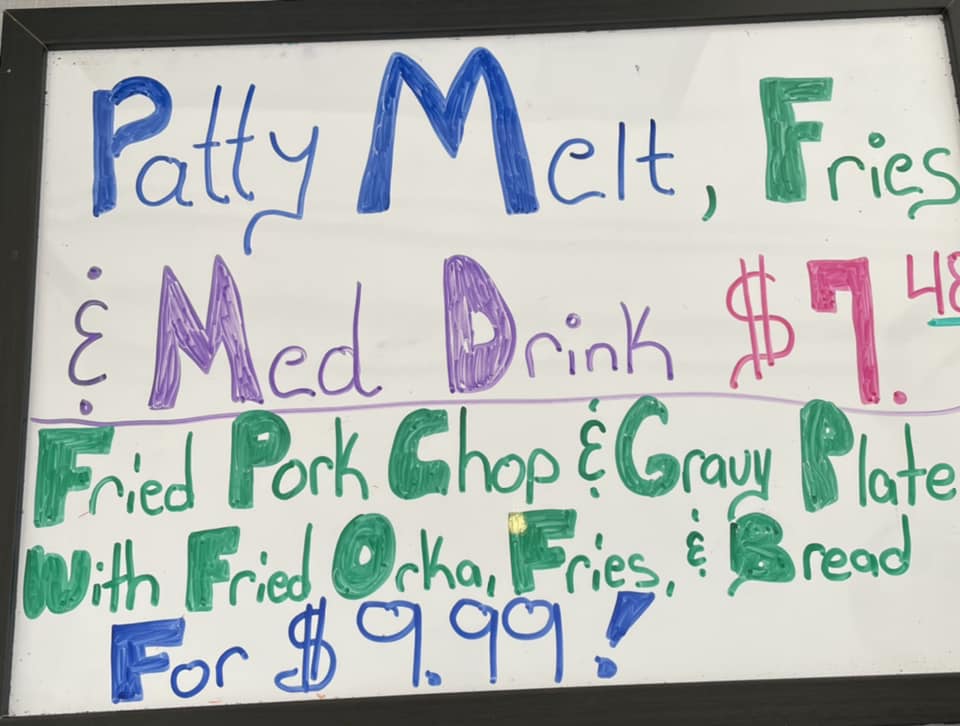 Patty Melt, Fries
& Med Drink $7.48
Fried Pork Chop & Gravy Plate
With Fried Orka, Fries, & Bread
For $9.99!